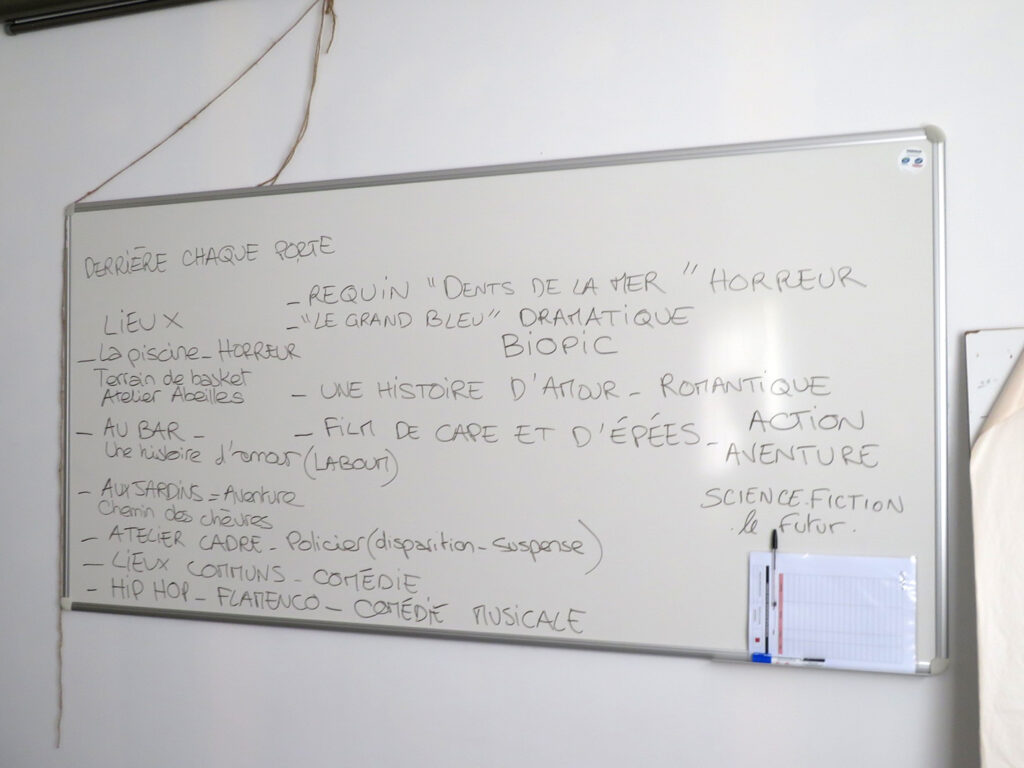 DERRIÈRE CHAQUE PORTE
- REQUIN "DENTS DE LA MER" HORREUR
- "LE GRAND BLEU" DRAMATIQUE
BIOPIC
- UNE HISTOIRE D'AMOUR - ROMANTIQUE
- FILM DE CAPE ET D'ÉPÉES - ACTION
AVENTURE
SCIENCE-FICTION
le futur.
LIEUX
- La piscine - HORREUR
Terrain de basket
Atelier Abeilles
- AU BAR -
Une histoire d'amour (LABOUM)
- AUX JARDINS = Aventure
Chemin des chèvres
- ATELIER CADRE - Policier (disparition - suspense)
- LIEUX COMMUNS - COMÉDIE
- HIP HOP - FLAMENCO - COMÉDIE MUSICALE